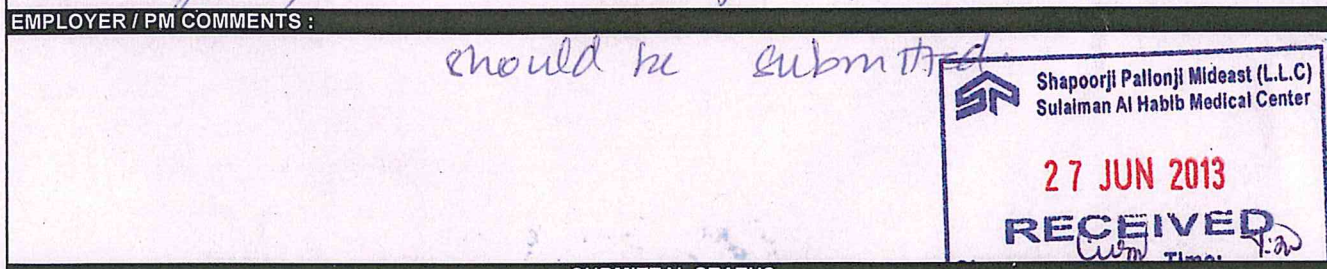 EMPLOYER / PM COMMENTS :
should be submitted.
SP
Shapoorji Pallonji Mideast (L.L.C)
Sulaiman Al Habib Medical Center
27 JUN 2013
RECEIVED
Time:
SUBMITTAL STATUS